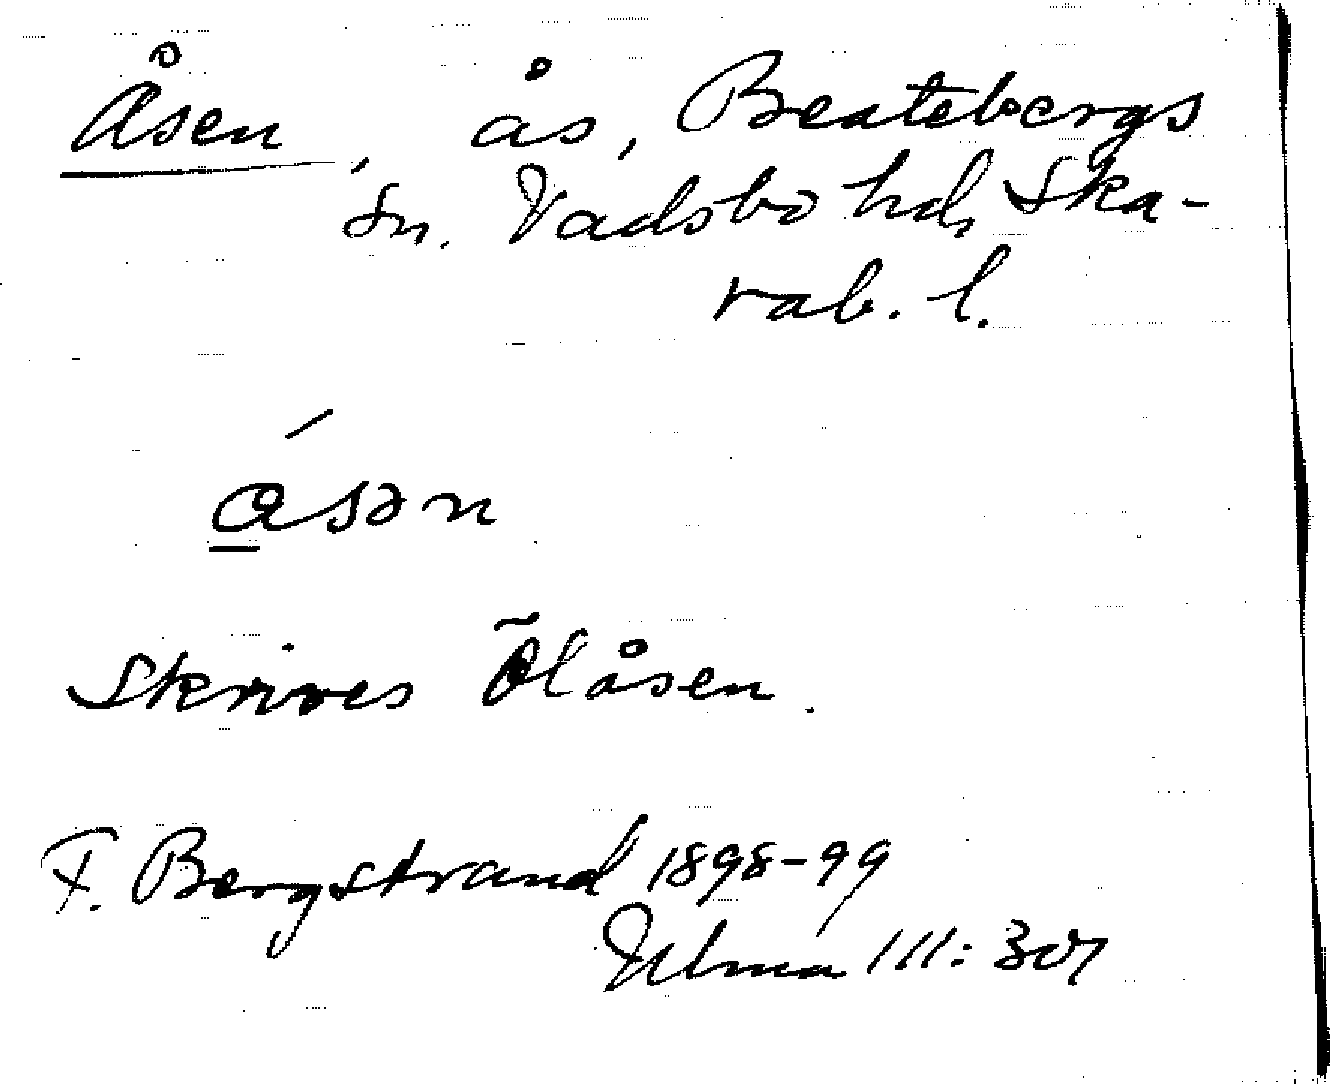 Åsen, ås, Beatebergs
sn. Vadsbo hd, Ska-
rab. l.
åsən
Skrives Ölåsen.
F. Bergstrand 1898-99
Ulma 111:307